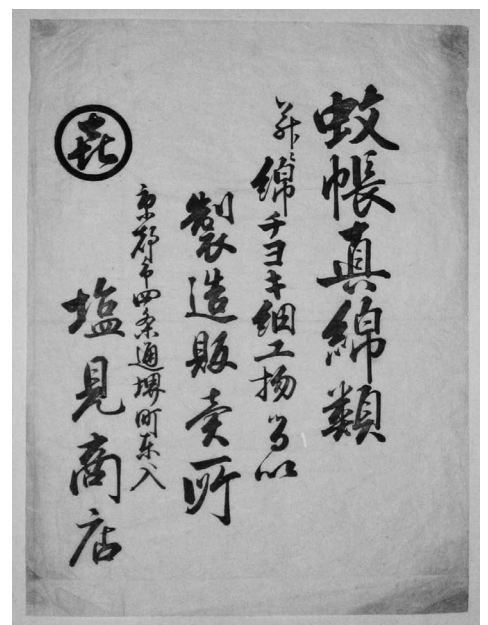 蚊帳真綿類
并ニ綿チヨキ細工物
製造販売所
京都市四条通堺町東入
塩見商店
㐂